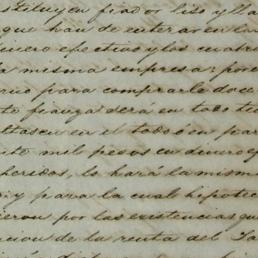 stituyen fiador liso y lla
que han de enterar en la
dinero efectivo y los cuatro
la misma empresa: por
para comprarle doce
to fianza será en todo ti
en el todo ó en par
nto mil pesos en dinero y
heridos, lo hará la misma
y para la cual hipotec
ieron por las existencias que
cion de la renta del Ta